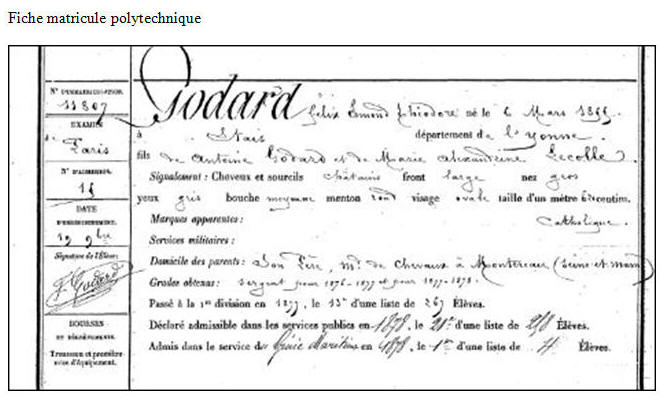 Fiche matricule polytechnique
N° D'IMMATRICULATION.
11807
EXAMEN
de Paris
N° D'ADMISSION.
15
DATE
D'ENREGISTREMENT.
19 9bre
Signature de l'Élève:
F. Godard
BOURSES
ET DÉGRÈVEMENTS.
Trousseau et première
mise d'équipement.
Godard Félix Emond Théodore né le 6 Mars 1855
à département de l'Yonne
fils de Antoine Godard et de Marie Alexandrine Lecolle
Signalement: Cheveux et sourcils châtains front large nez gros
yeux gris bouche moyenne menton rond visage ovale taille d'un mètre centim.
Marques apparentes: Catholique.
Services militaires:
Domicile des parents: Son Père, Md de Chevaux à Montereau (Seine et Marne)
Grades obtenus: Sergent pour 1876-1877 et pour 1877-1878.
Passé à la 1re division en 1877, le 13e d'une liste de 267 Élèves.
Déclaré admissible dans les services publics en 1878, le 21e d'une liste de Élèves.
Admis dans le service du Génie Maritime en 1878, le 1er d'une liste de 4 Élèves.